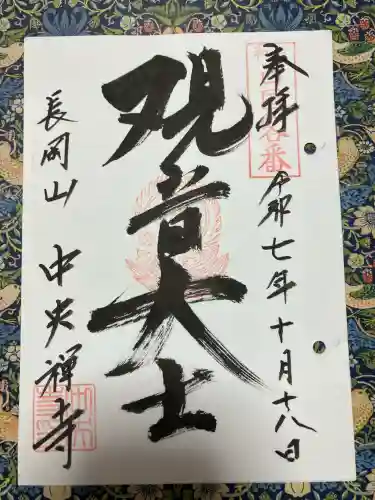 奉拝
令和七年十月十八日
観音大士
長岡山 中央禅寺